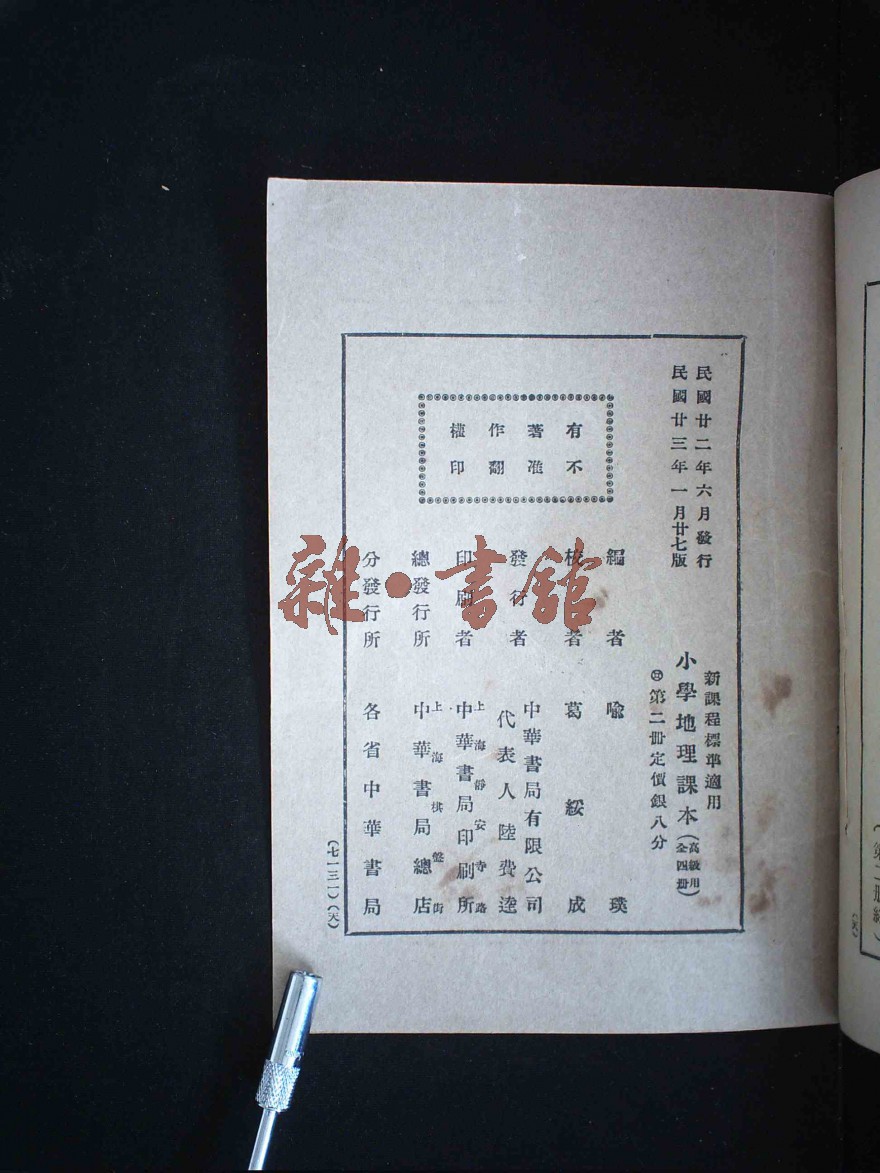 民國廿二年六月發行
民國廿三年一月廿七版
新課程標準適用
小學地理課本(高級用全四册)
第二冊定價銀八分
有著作權
不准翻印
編者 喻璞
校者 葛綏成
發行者 中華書局有限公司
代表人陸費逵
印刷者 上海靜安寺路
中華書局印刷所
總發行所 上海棋盤街
中華書局總店
分發行所 各省中華書局
(七一三一)(天)
雜·書館